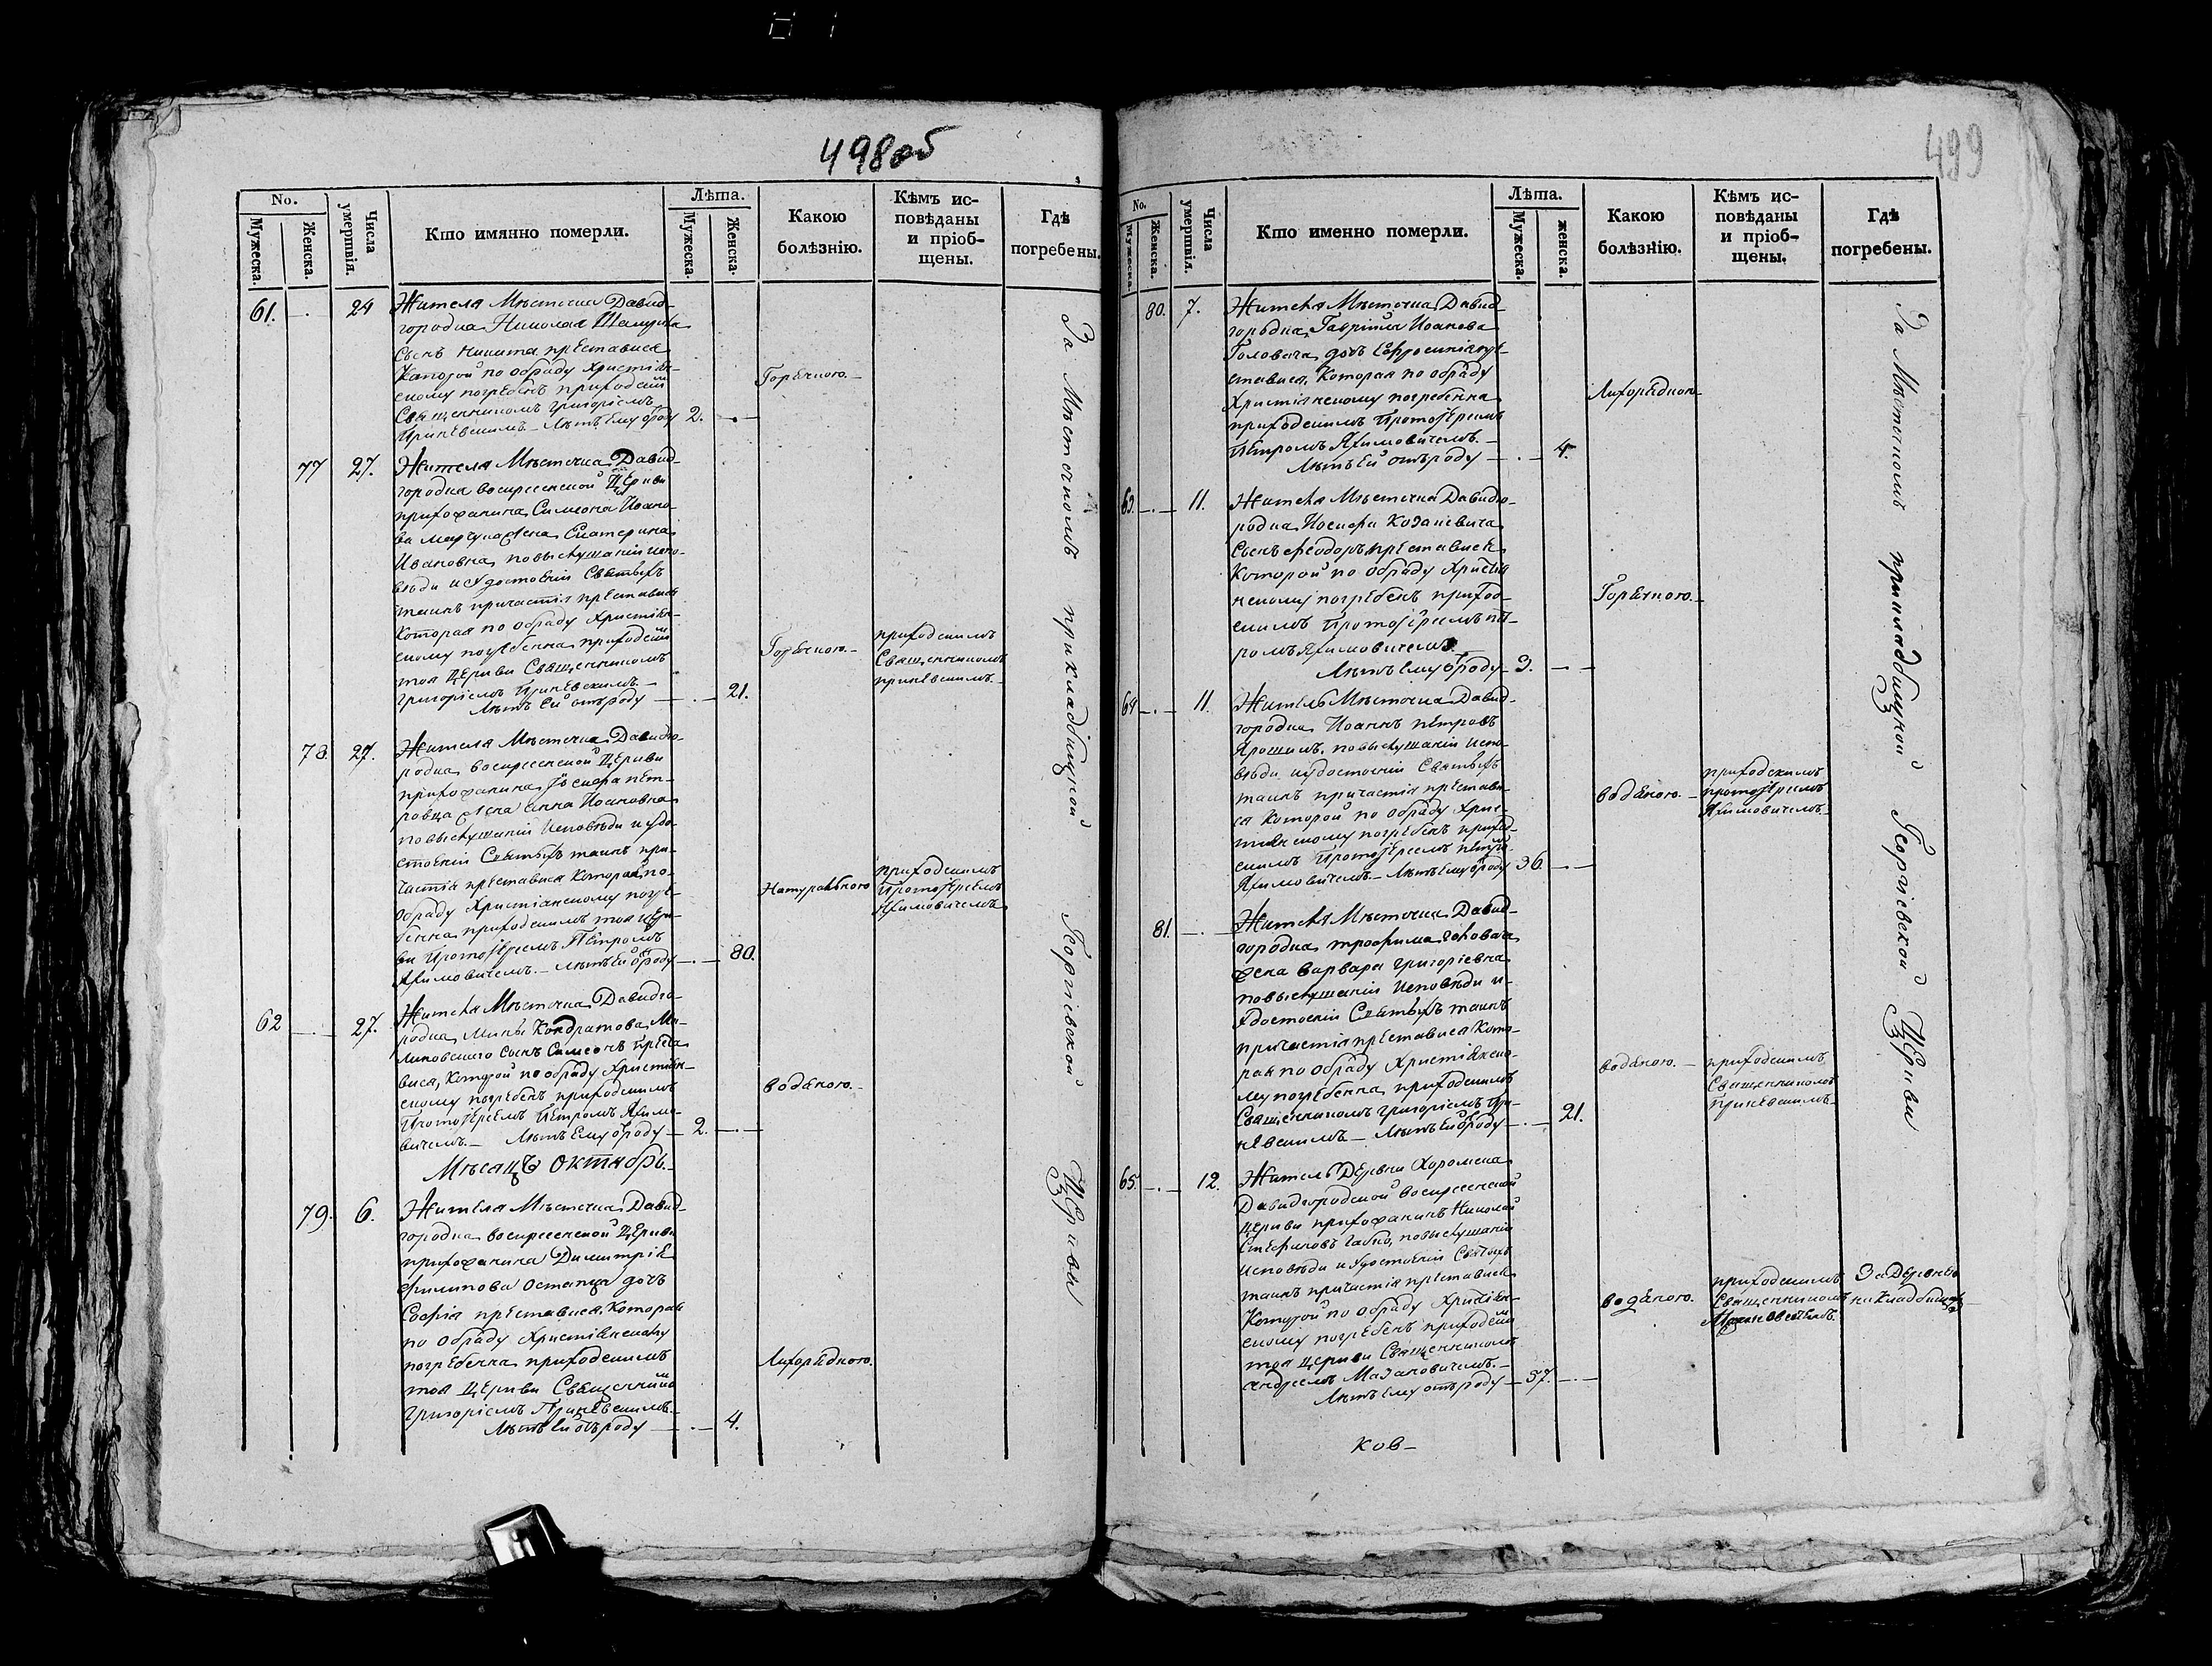 498 об
No.
Мужеска.
Женска.
Числа умертвія.
Кто имянно померли.
Лѣта.
Мужеска.
Женска.
Какою болѣзнію.
Кѣмъ ис-
повѣданы
и пріоб-
щены.
Гдѣ
погребены.
61. 24 Жителя Мѣстечка Давид-
городка Николая
Сынъ Никита преставися
Которой по обряду Христіян-
скому погребенъ приходским
Священникомъ Григоріемъ
Лѣтъ Ему ѿроду 2.
Горячкою.
77 27. Жителя Мѣстечка Давид-
городка воскресенской Церкви
прихожанина Симеона Иоано-
ва жена Екатерина
Ивановна, по выслушаніи испо-
вѣди и удостоеніи Святыхъ
таинъ причастія преставися
Которая по обряду Христіян-
скому погребенна приходским
тоя Церкви Священникомъ
Григоріемъ
Лѣтъ Ей отъроду 21.
Горячкою.
приходскимъ
Священникомъ
78. 27. Жителя Мѣстечка Давидго-
родка воскресенской Церкви
прихожанина Іосифа Пет-
ровца жена Анна Иоановна
по выслушаніи Исповѣди и удо-
стоеніи Святыхъ таинъ при-
частія преставися Которая по
обряду Христіянскому погре-
бенна приходскимъ тоя церк-
ви Протоіереемъ Петромъ
Якимовичемъ. Лѣтъ Ей ѿроду 80.
Натуральною
приходскимъ
Протоіереемъ
Якимовичемъ
62 27. Жителя Мѣстечка Давидго-
родка Мины Кондратова
сынъ Симеонъ преста-
вися, Которой по обряду Христіян-
скому погребенъ приходскимъ
Протоіереемъ Петромъ Якимо-
вичемъ. Лѣтъ Ему ѿроду 2.
водяною.
Мѣсяцъ Октябрь.
79. 6. Жителя Мѣстечка Давид-
городка воскресенской Церкви
прихожанина Димитрія
Филипова Остапца дочъ
Софія преставися, Которая
по обряду Христіянскому
погребенна приходскимъ
тоя Церкви Священником
Григоріемъ
Лѣтъ Ей отъроду 4.
Лихорадкою.
За Мѣстечкомъ при кладбищной Георгіевской Церкви
499
No.
Мужеска.
Женска.
Числа умертвія.
Кто именно померли.
Лѣта.
Мужеска.
женска.
Какою болѣзнію.
Кѣмъ ис-
повѣданы
и пріоб-
щены.
Гдѣ
погребены.
80. 7. Жителя Мѣстечка Давид
городка Гавріила Иоанова
Головача дочъ Ефросинія пре-
ставися, Которая по обряду
Христіянскому погребенна
приходскимъ Протоіереемъ
Петромъ Якимовичемъ.
Лѣтъ Ей отъроду 4.
Лихорадкою
63. 11. Жителя Мѣстечка Давидго-
родка Иосифа
Сынъ Феодоръ преставися
Которой по обряду Христія
нскому погребенъ приход-
скимъ Протоіереемъ Пет-
ромъ Якимовичемъ
Лѣтъ Ему ѿроду 3.
Горячкою.
64 11. Житель Мѣстечка Давид-
городка Иоаннъ Петровъ
по выслушаніи испо-
вѣди и удостоеніи Святыхъ
таинъ причастія престави-
ся Которой по обряду Хрис-
тиянскому погребенъ приход-
скимъ Протоіереемъ Петром
Якимовичемъ. Лѣтъ Ему ѿроду 36.
водяною.
приходскимъ
протоіереемъ
Якимовичемъ.
81. Жителя Мѣстечка Давид-
городка Трофима Головача
жена Варвара Григоріевна
по выслушаніи Исповѣди и
удостоеніи Святыхъ таинъ
причастія преставися Кото-
рая по обряду Христіянско-
му погребенна приходскимъ
Священникомъ Григоріемъ
Лѣтъ Ей ѿроду 21.
водяною.
приходскимъ
Священникомъ
65. 12. Житель Деревни Хоромска
Давидгородской воскресенской
Церкви прихожанинъ Николай
Стефановъ по выслушаніи
исповѣди и удостоеніи Святыхъ
таинъ причастія преставися
Которой по обряду Христіян-
скому погребенъ приходским
тоя Церкви Священникомъ
Андреемъ Мазановичемъ.
Лѣтъ Ему отъроду 37.
водяною.
приходскимъ
Священникомъ
За Деревнею
на Кладбищѣ
За Мѣстечкомъ при кладбищной Георгіевской Церкви
ков-